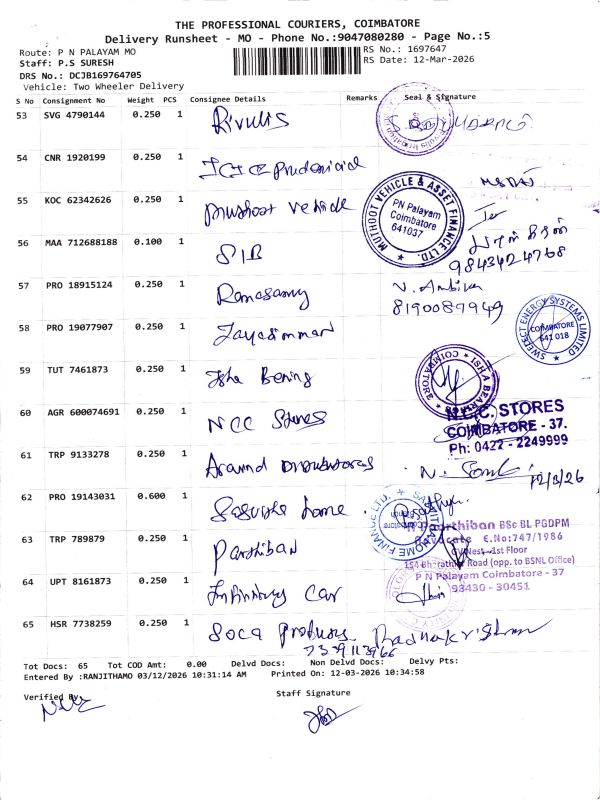 THE PROFESSIONAL COURIERS, COIMBATORE
Delivery Runsheet - MO - Phone No.:9047080280 - Page No.:5
Route: P N PALAYAM MO
RS No.: 1697647
Staff: P.S SURESH
RS Date: 12-Mar-2026
DRS No.: DCJB169764705
Vehicle: Two Wheeler Delivery
S No Consignment No Weight PCS Consignee Details Remarks Seal & Signature
53 SVG 4790144 0.250 1 Rivulis
54 CNR 1920199 0.250 1 ICICI prudencial
55 KOC 62342626 0.250 1 Muthoot vehicle
MUTHOOT VEHICLE & ASSET FINANCE LTD.
PN Palayam
Coimbatore
641037
56 MAA 712688188 0.100 1 SIB
9843424768
57 PRO 18915124 0.250 1 Ramasamy N. Ambika
8190089949
58 PRO 19077907 0.250 1
SWELECT ENERGY SYSTEMS LIMITED
COIMBATORE
641 018
59 TUT 7461873 0.250 1 Isha Bering
ISHA BEARING
COIMBATORE
60 AGR 600074691 0.250 1 NCC Stores
N.C.C. STORES
COIMBATORE - 37.
Ph: 0422 - 2249999
61 TRP 9133278 0.250 1 Aravind
12/3/26
62 PRO 19143031 0.600 1 home
HOME FINANCE LTD.
63 TRP 789879 0.250 1 Parthiban
Parthiban BSc BL PGDPM
Advocate E.No:747/1986
1st Floor
154 Bharathiar Road (opp. to BSNL Office)
P N Palayam Coimbatore - 37
98430 - 30451
64 UPT 8161873 0.250 1 Infinitury Car
65 HSR 7738259 0.250 1 Soca Radhakrishnan
7339113966
Tot Docs: 65 Tot COD Amt: 0.00 Delvd Docs: Non Delvd Docs: Delvy Pts:
Entered By :RANJITHAMO 03/12/2026 10:31:14 AM Printed On: 12-03-2026 10:34:58
Verified By
Staff Signature